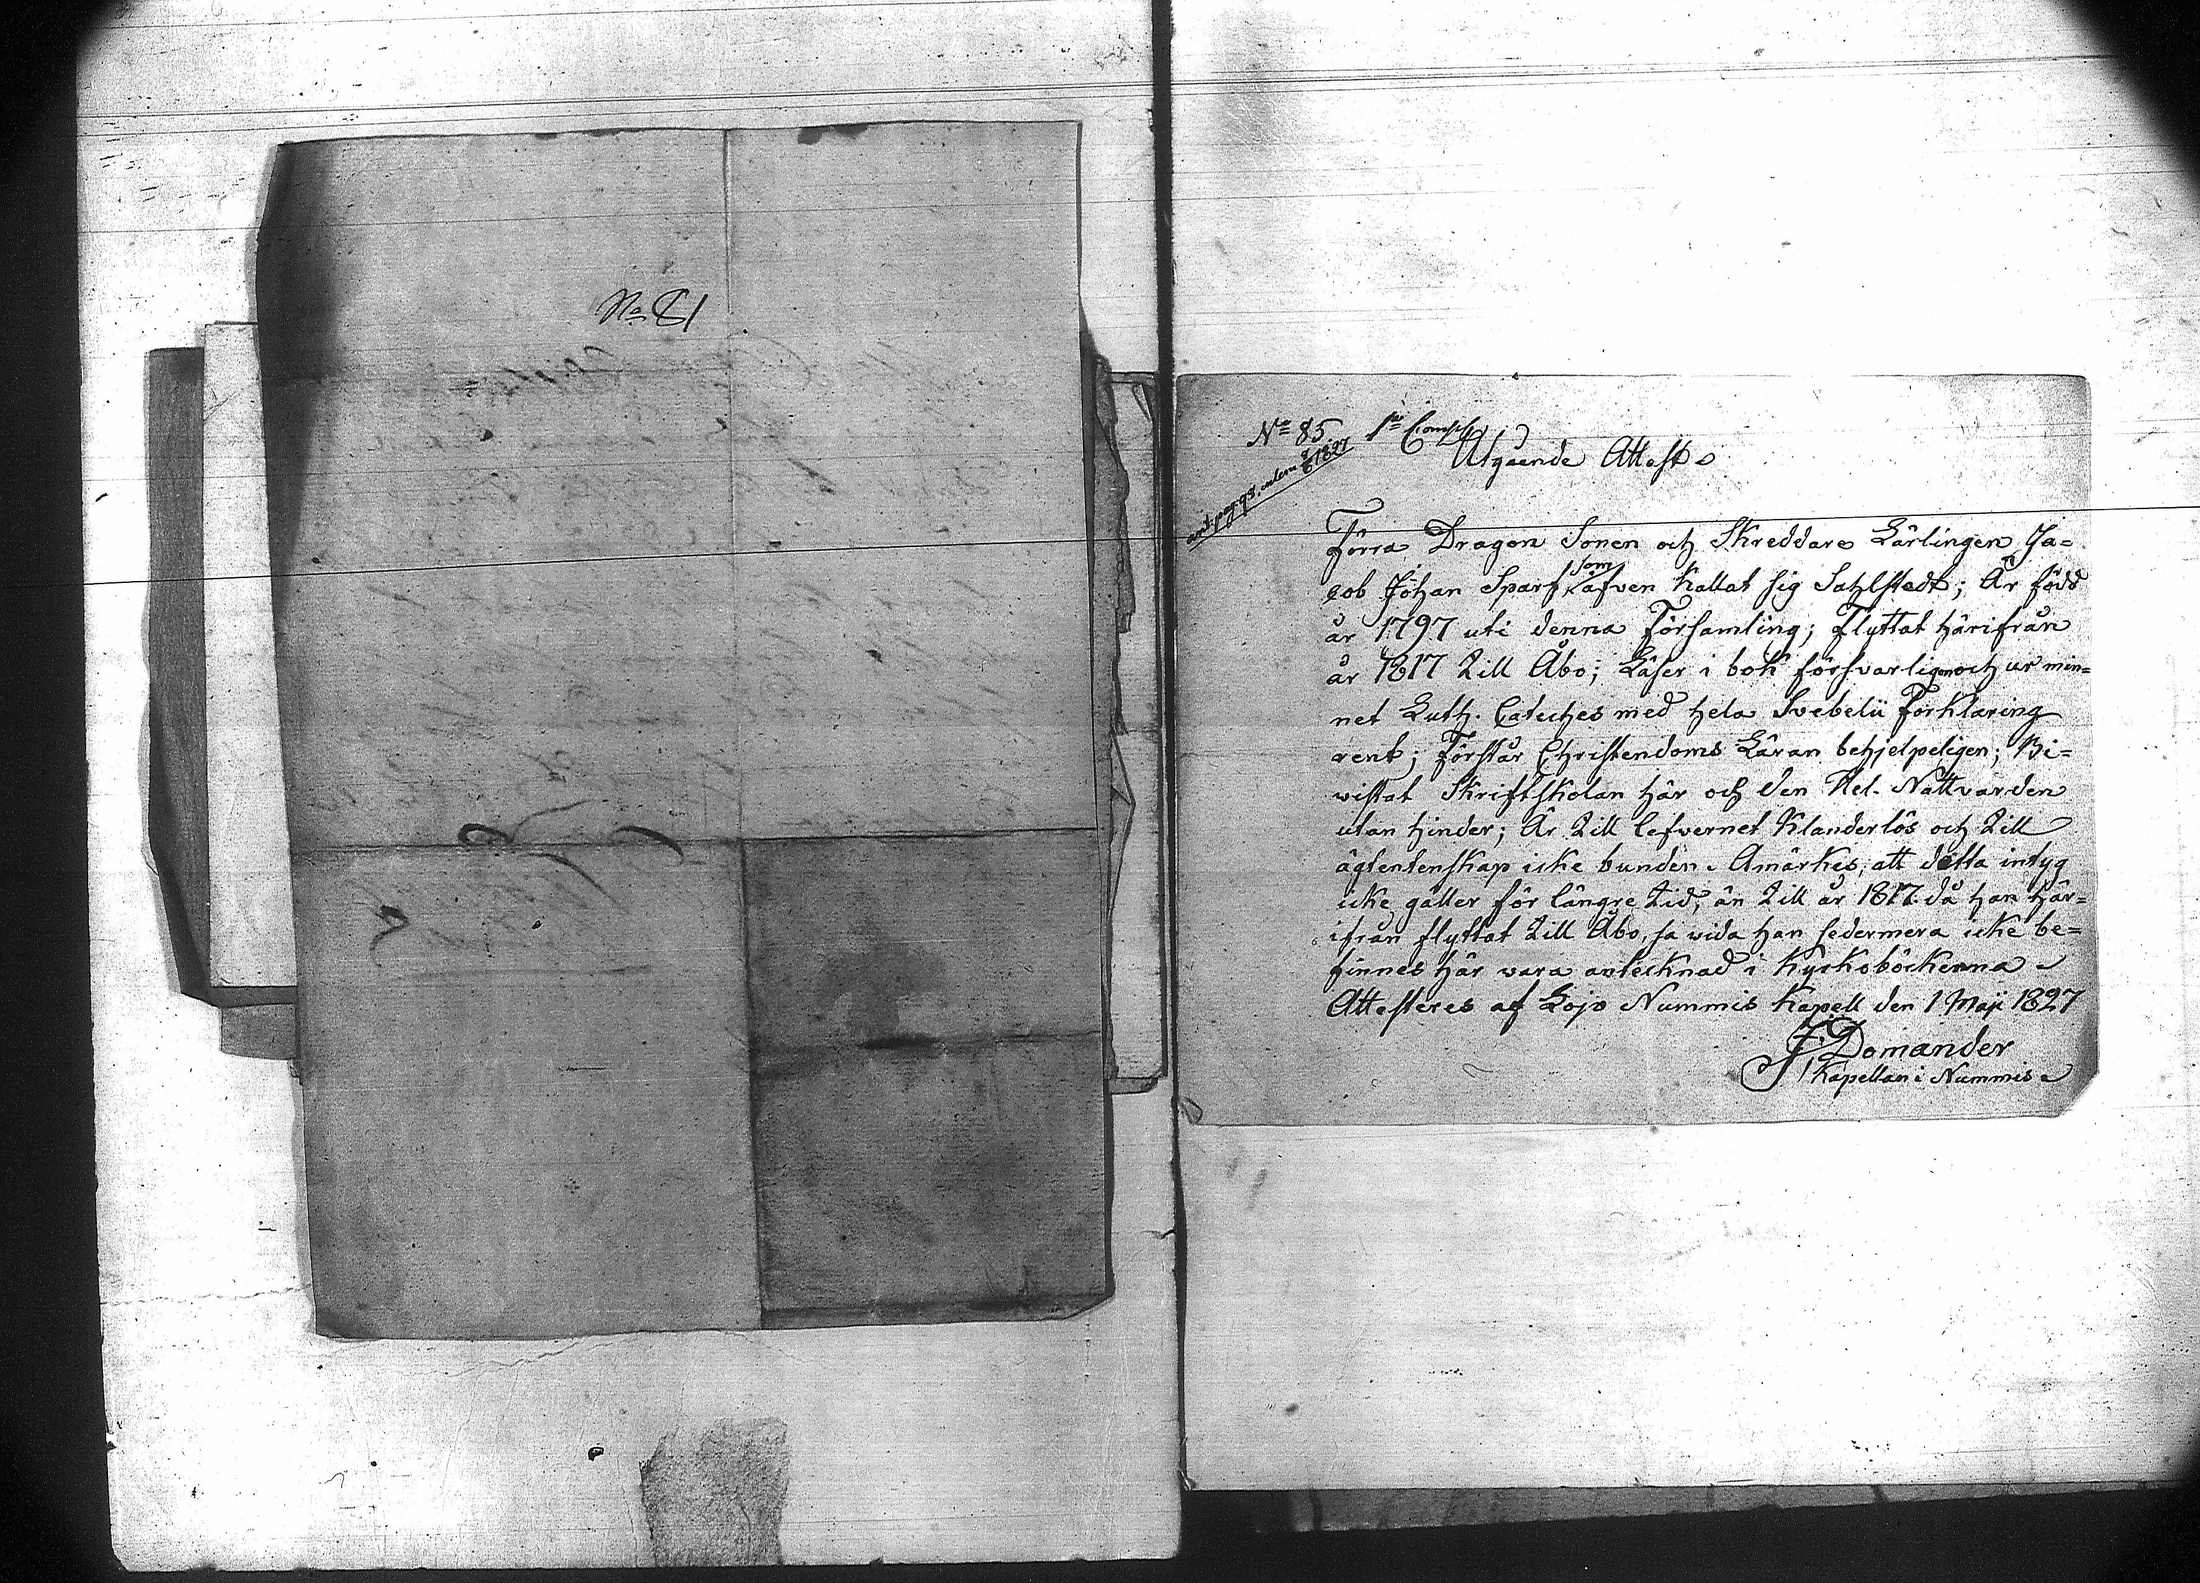 No 81
No 85. 1sta Comp.
ant. pag. 98. eodem 8/6 1827
Utgående Attest
Förra Dragon Sonen och Skreddare Lärlingen, Ja=
cob Johan Sparf som äfven kallat sig Sahlstedt; Är född
år 1797 uti denna Församling; flyttat härifrån
år 1817 till Åbo; Läser i bok försvarligen och ur min=
net Luth. Cateches med hela Svebelii Förklaring
rent; förstår Christendoms Läran behjelpeligen; Bi=
vistat Skriftskolan här och den Hel. Nattvarden
utan hinder; Är till lefvernet klanderlös och till
ägtenskap icke bunden. Anmärkes, att detta intyg
icke gäller för längre tid, än till år 1817. då han här=
ifrån flyttat till Åbo, så vida han sedermera icke be=
finnes här vara antecknad i Kyrkoböckerna.
Attesteres af Lojo Nummis Kapell den 1 Maji 1827
J. Domander
Kapellan i Nummis